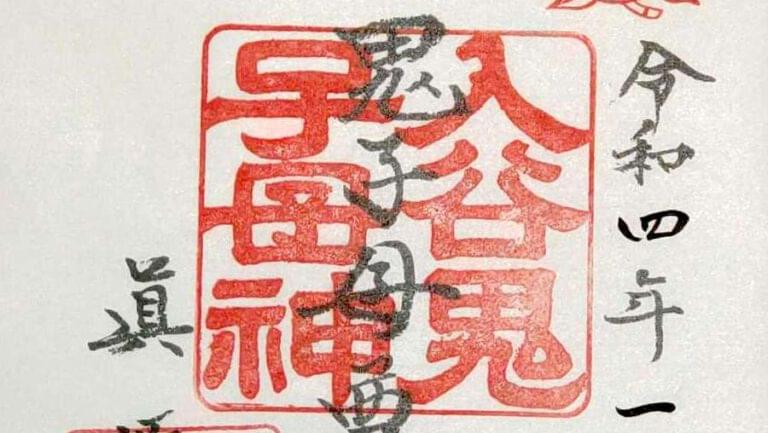 令和四年一
入谷鬼
子母神
鬼子母
眞